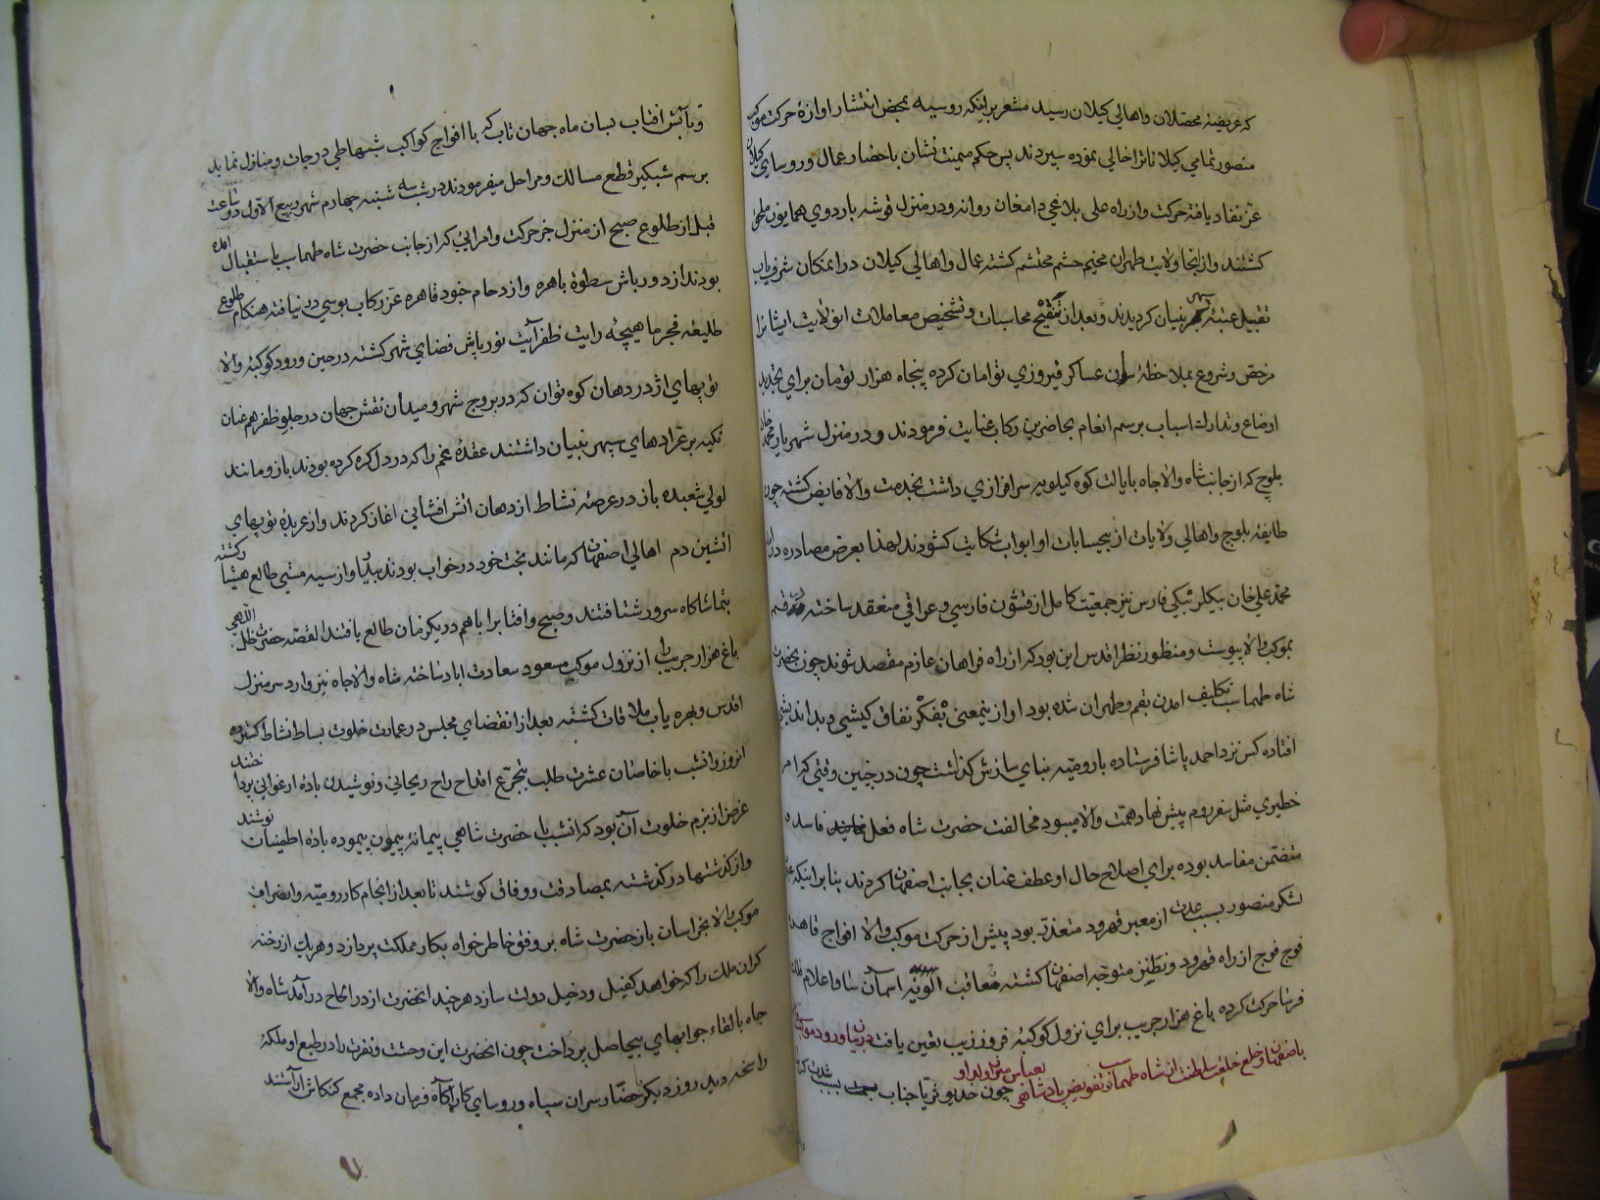 که عریضهٔ محصلان واهالی کیلان رسید مشعر براینکه روسیه بمحض انتشار اوازهٔ حرکت موکب
منصور تمامی کیلاناترا خالی نموده سپردند پس حکم میمنت نشان باحضار عمال وروسای کیلان
عزّ نفاد یافته حرکت وازراه علی بلاغی دامغان روانه ودر منزل قوشه باردوی همایون ملحق
کشتند وازانجا ولایت طهران مخیم حشم محتشم کشته عمال واهالی کیلان درانمکان شرفیاب
تقبیل عتبهٔ سپهر بنیان کردیدند وبعد از تنقیح محاسبات وتشخیص معاملات انولایت ایشانرا
مرخص وشروع بملاحظهٔ سان عساکر فیروزی توامان کرده پنجاه هزار تومان برای تجدید
اوضاع وتدارک اسباب برسم انعام بحاضرین رکاب عنایت فرمودند ودر منزل شهریار محمدخان
بلوچ که ازجانب شاه والاجاه بایالت کوه کیلویه سرافرازی داشت بخدمت والا فایض کشته چون
طایفهٔ بلوچ واهالی ولایات از بیحسابات او ابواب شکایت کشودند لهذا بعرض مصادره درامد
محمدعلی خان بیکلربیکی فارس نیز جمعیت کامل از قشون فارسی وعراقی منعقد ساخته در قم
بموکب والا پیوست ومنظور نظر اقدس این بود که ازراه فراهان عازم مقصد شوند چون بحضرت
شاه طهماسب تکلیف امدن بقم وطهران شده بود او ازینمعنی بفکر نفاق کیشی وبداندیشی
افتاده کس نزد احمد پاشا فرستاده بارومیه بنای سازش کذاشت چون درچنین وقتی که امر
خطیری مثل سفر روم پیش نهاد همت والا میبود مخالفت حضرت شاه فعل فاسد و
متضمن مفاسد بوده برای اصلاح حال او عطف عنان بجانب اصفهان کردند بنابراینکه
لشکر منصور بسبب شدت از معبر قهرود متعذر بود پیش از حرکت موکب والا افواج قاهره
فوج فوج ازراه قهرود ونطنز متوجه اصفهان کشته متعاقب الویه اسمان سا واعلام
فرسا حرکت کرده باغ هزارجریب برای نزول کوکبهٔ فروزیب تعین یافت دربیان ورود موکب
باصفهان وخلع خلعت سلطنت از شاه طهماسب وتفویض پادشاهی بعباس میرزا ولد او چون خدیو ثریا جناب بسبب شدت کرما
وتابش افتاب بسان ماه جهان تاب که با افواج کواکب شبها طی درجات ومنازل نماید
برسم شبکیر قطع مسالک ومراحل میفرمودند درشب سه شنبه چهاردم شهر ربیع الاول دو ساعت
قبل از طلوع صبح از منزل جز حرکت وامرائی که ازجانب حضرت شاه طهماسب باستقبال امده
بودند از دورباش سطوة باهره وازدحام جنود قاهره عزّ رکاب بوسی درنیافته هنکام طلوع
طلیعه فجر ماهیچهٔ رایت ظفرآیت نورپاش فضای شهر کشته درحین ورود کوکبهٔ والا
توپهای اژدر دهان کوه توان که در بروج شهر ومیدان نقش جهان درجلو ظفر هم عنان
تکیه برعرادهای سپهر بنیان داشتند عقدهٔ غم راکه دردل کره کرده بودند باز ومانند
لولی شعبده باز درعرصهٔ نشاط ازدهان اتش افشانی اغاز کردند واز عربدهٔ توپهای
اتشین دم اهالی اصفهان که مانند بخت خود درخواب بودند بیدار واز سیه مستی طالع هشیار کشته
بتماشاکاه سرور شتافتند وصبح وافتابرا باهم دریکزمان طالع یافتند القصه حضرت ظل اللهی
باغ هزارجریب را از نزول موکب مسعود سعادت اباد ساخته شاه والاجاه نیز وارد سرمنزل
اقدس وبهره یاب ملاقات کشته بعد از انقضای مجلس درعمارت خلوت بساط نشاط کسترده
انروز وانشب باخاصان عشرت طلب بتجرّع اقداح راح ریحانی ونوشیدن بادهٔ ارغوانی پرداختند
غرض از بزم خلوت آن بود که انشب با حضرت شاهی پیمانهٔ پیمون پیموده بادهٔ اطمینان نوشند
واز کذشتها درکذشته بمصادقت ووفاق کوشند تا بعد از انجام کار رومیه وانصراف
موکب والا بخراسان باز حضرت شاه بروفق خاطرخواه بکار مملکت پردازد وهریک از رخنه
کران ملک را که خواهد کفیل ودخیل دولت سازد هرچند انحضرت از در الحاح درآمد شاه والا
جاه بالقاء جوابهای بیحاصل پرداخت چون انحضرت این وحشت ونفرت را درطبع او ملکهٔ
راسخه دید روز دیکر حضار سران سپاه وروسای کاراکاه فرمان داده مجمع کنکاش آراستند